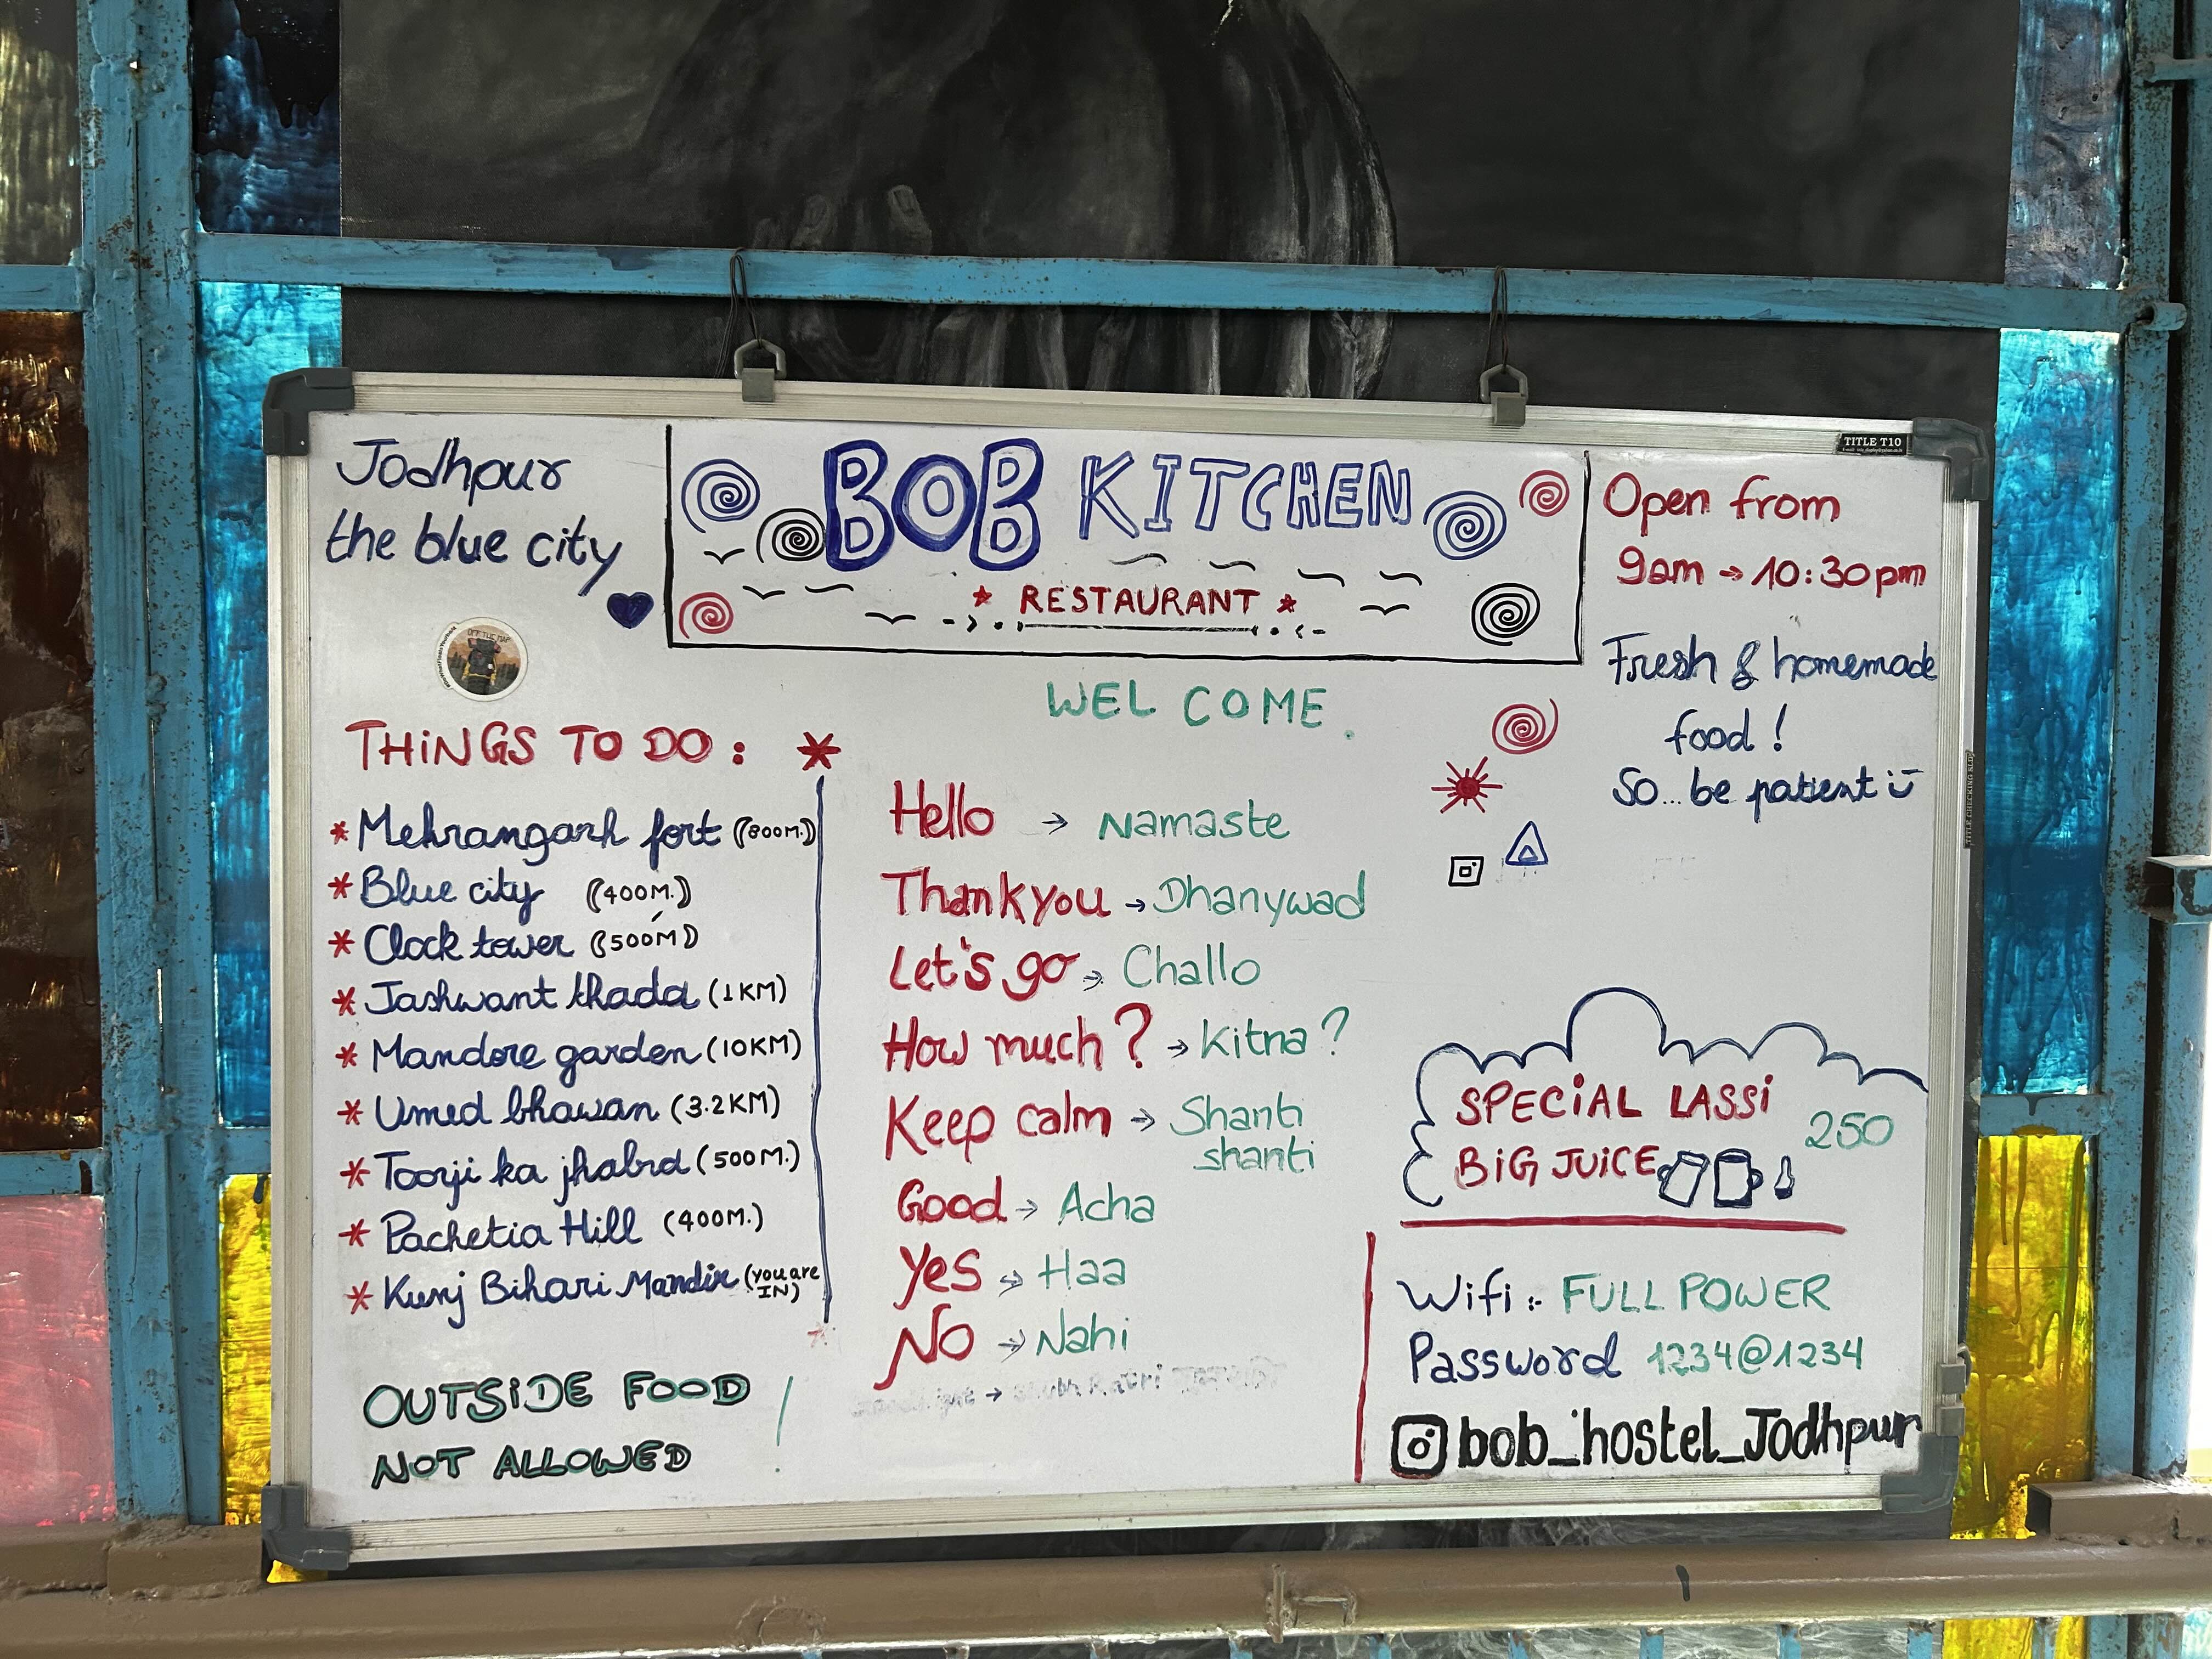 Jodhpur
the blue city
BOB KITCHEN
RESTAURANT
Open from
9am → 10:30pm
Fresh & homemade
food !
So... be patient
TITLE T10
OFF THE MAP
WEL COME.
THiNGS TO DO :
* Mehrangarh fort (800M.)
* Blue city (400M.)
* Clock tower (500M)
* Jashwant thada (1KM)
* Mandore garden (10KM)
* Umed bhawan (3.2KM)
* Toorji ka jhalrd (500M.)
* Pachetia Hill (400M.)
* Kunj Bihari Mandir (you are
IN)
OUTSiDE FOOD
NOT ALLOWED !
Hello → Namaste
Thankyou → Dhanywad
Let's go → Challo
How much? → Kitna?
Keep calm → Shanti
shanti
Good → Acha
Yes → Haa
No → Nahi
SPECiAL LASSi
BiG JUiCE
250
Wifi :- FULL POWER
Password 1234@1234
bob_hostel_Jodhpur